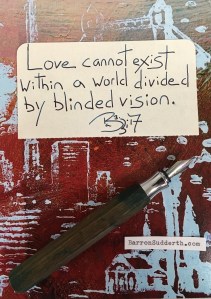 Love cannot exist
within a world divided
by blinded vision.
BarronSudderth.com